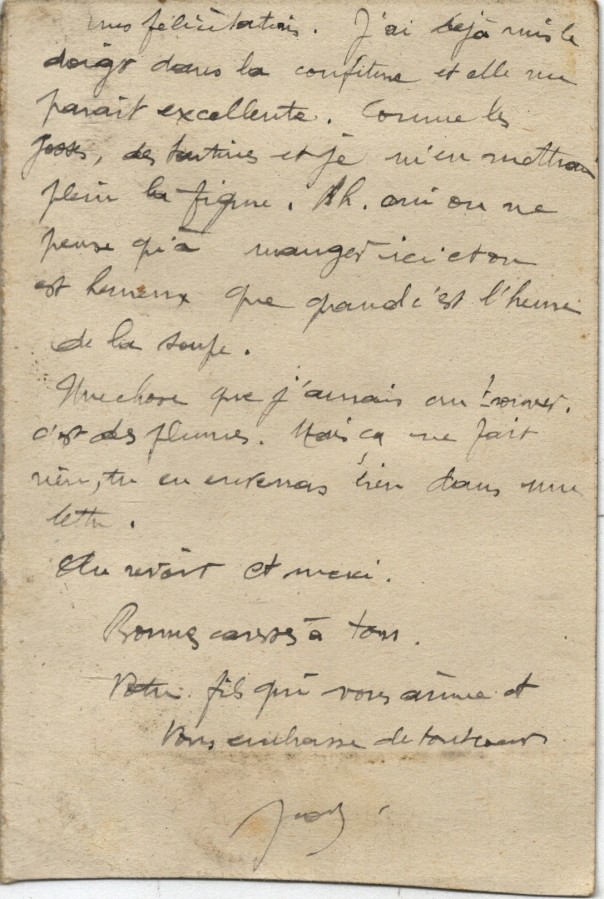 mes félicitations. J'ai déjà mis le
doigt dans la confiture et elle me
paraît excellente. Comme les
gosses, des tartines et je m'en mettrai
plein la figure. Ah. oui on ne
pense qu'à manger ici et on
est heureux que quand c'est l'heure
de la soupe.
Une chose que j'aurais cru trouver.
c'est des plumes. Mais ça ne fait
rien, tu en enverras bien dans une
lettre.
Au revoir et merci.
Bonnes caresses à tous.
Votre fils qui vous aime et
vous embrasse de tout coeur